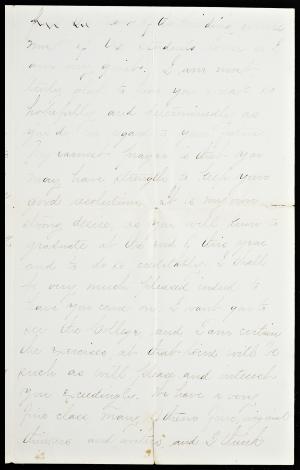 most of the students
quiet. I am most
truly glad to hear you speak so
hopefully and determinedly as
you do in regard to your future
My earnest prayer is that you
may have strength to keep your
good resolutions. It is my own
strong desire, as you will know to
graduate at the end of this year
and to do so creditably. I shall
be very much pleased indeed to
have you come on. I want you to
see the College and I am certain
the exercises at that time will be
such as will please and interest
you exceedingly. We have a very
fine class many of them fine, original
thinkers and writers and I think